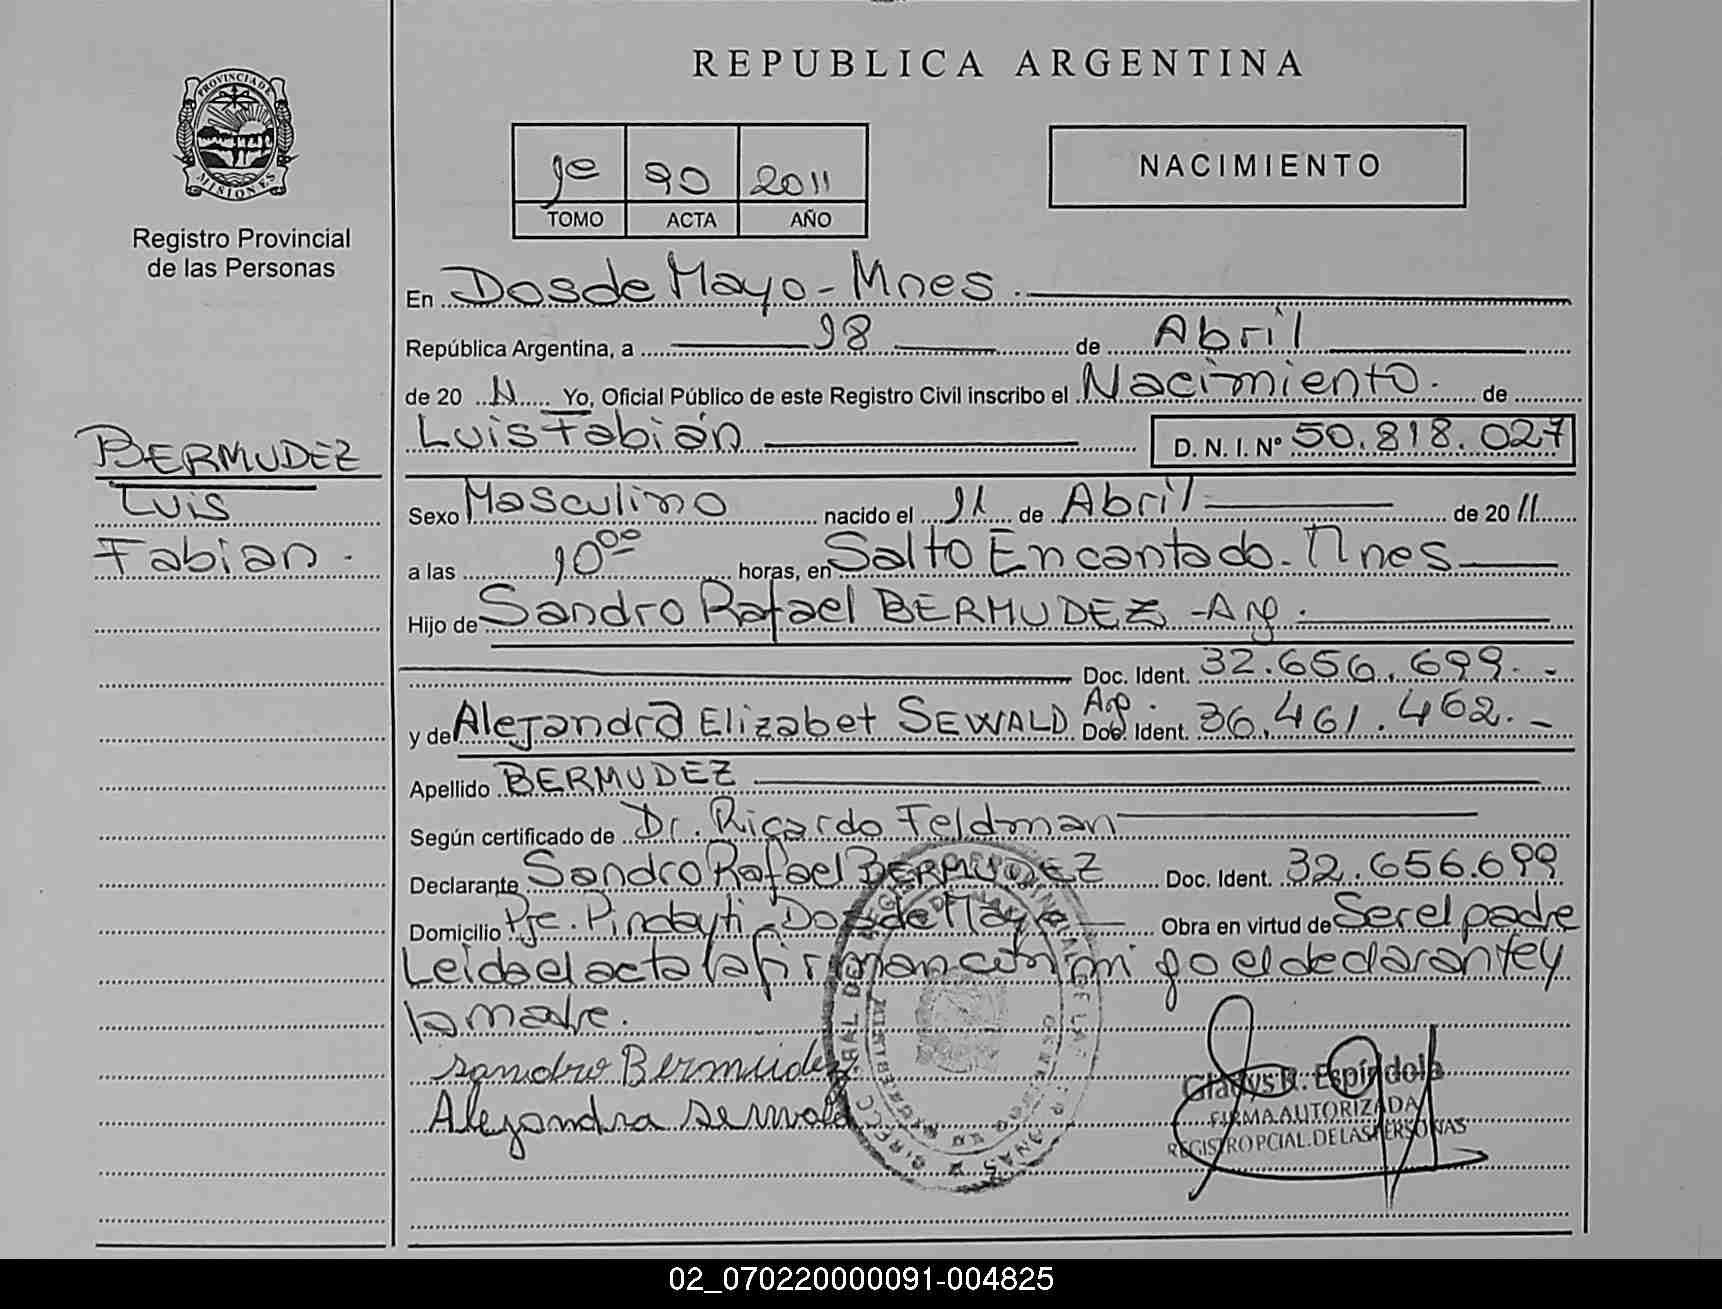 REPUBLICA ARGENTINA
PROVINCIA DE MISIONES
Registro Provincial
de las Personas
1º 90 2011
TOMO ACTA AÑO
NACIMIENTO
En Dos de Mayo - Mnes.
República Argentina, a 18 de Abril
de 20 11 Yo, Oficial Público de este Registro Civil inscribo el Nacimiento. de
Luis Fabián D. N. I. Nº 50.818.027
BERMUDEZ
Luis
Fabian.
Sexo Masculino nacido el 11 de Abril de 20 11
a las 10⁰⁰ horas, en Salto Encantado - Mnes
Hijo de Sandro Rafael BERMUDEZ - Arg.
Doc. Ident. 32.656.699. -
y de Alejandra Elizabet SEWALD Arg. Doc. Ident. 36.461.462. -
Apellido BERMUDEZ
Según certificado de Dr. Ricardo Feldman
Declarante Sandro Rafael BERMUDEZ Doc. Ident. 32.656.699
Domicilio Pje. Pindayti - Dos de Mayo Obra en virtud de Ser el padre
Leida el acta la firman conmigo el declarante y
la madre.
Sandro Bermudez
Alejandra Sewald
Gladys R. Espíndola
FIRMA AUTORIZADA
REGISTRO PCIAL. DE LAS PERSONAS
02_070220000091-004825